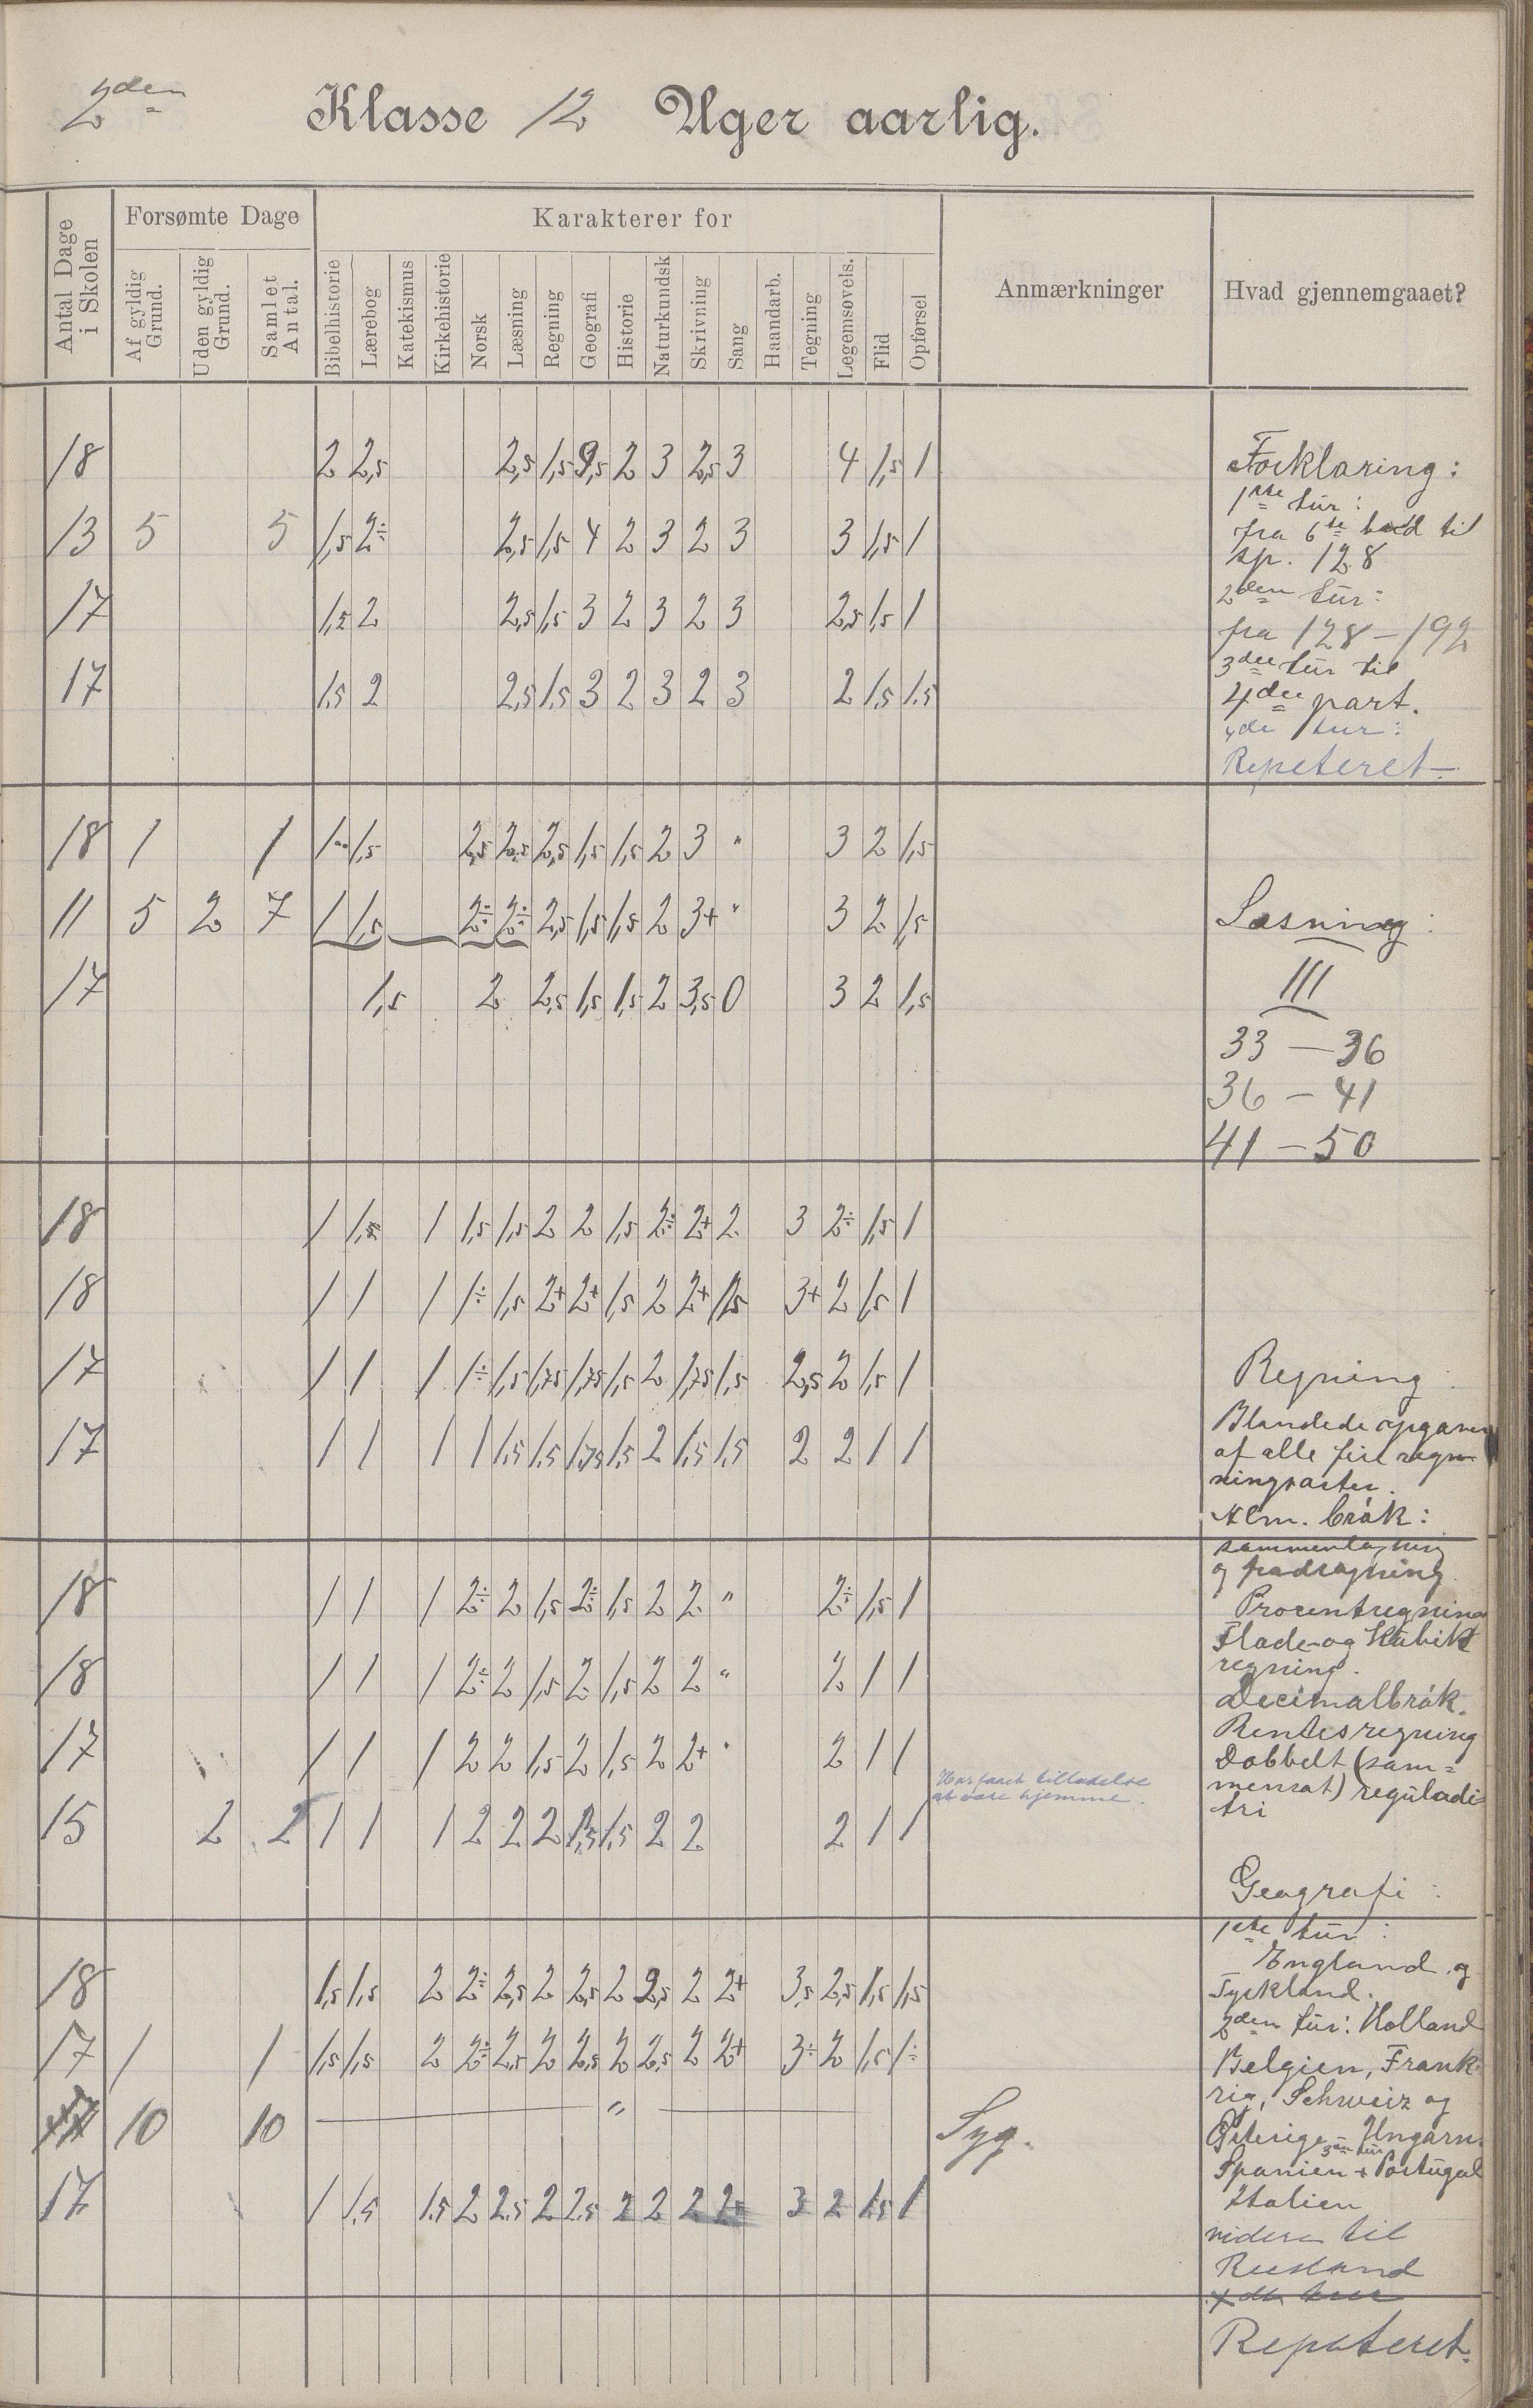 2den Klasse 12 Uger aarlig.
Antal Dage i Skolen
Forsømte Dage
Af gyldig Grund.
Uden gyldig Grund.
Samlet Antal.
Karakterer for
Bibelhistorie
Lærebog
Katekismus
Kirkehistorie
Norsk
Læsning
Regning
Geografi
Historie
Naturkundsk
Skrivning
Sang
Haandarb.
Tegning
Legemsøvels.
Flid
Opførsel
Anmærkninger
Hvad gjennemgaaet?
18 2 2,5 2,5 1,5 3,5 2 3 2,5 3 4 1,5 1
13 5 5 1,5 2÷ 2,5 1,5 4 2 3 2 3 3 1,5 1
17 1,5 2 2,5 1,5 3 2 3 2 3 2,5 1,5 1
17 1,5 2 2,5 1,5 3 2 3 2 3 2 1,5 1.5
18 1 1 1 1,5 2,5 2,5 2,5 1,5 1,5 2 3 " 3 2 1,5
11 5 2 7 1 1,5 2÷ 2÷ 2,5 1,5 1,5 2 3+ " 3 2 1,5
17 1,5 2 2,5 1,5 1,5 2 3,5 0 3 2 1,5
18 1 1,5 1 1,5 1,5 2 2 1,5 2÷ 2+ 2 3 2÷ 1,5 1
18 1 1 1 1÷ 1,5 2+ 2+ 1,5 2 2+ 1,5 3+ 2 1,5 1
17 1 1 1 1÷ 1,5 1,75 1,75 1,5 2 1,75 1,5 2,5 2 1,5 1
17 1 1 1 1 1,5 1,5 1,75 1,5 2 1,5 1,5 2 2 1 1
18 1 1 1 2÷ 2 1,5 2÷ 1,5 2 2 " 2÷ 1,5 1
18 1 1 1 2÷ 2 1,5 2 1,5 2 2 " 2 1 1
17 1 1 1 2 2 1,5 2 1,5 2 2+ " 2 1 1
15 2 2 1 1 1 2 2 2 1,5 1,5 2 2 2 1 1
Har faaet tilladelse
at være hjemme.
18 1,5 1,5 2 2÷ 2,5 2 2,5 2 2,5 2 2+ 3,5 2,5 1,5 1,5
17 1 1 1,5 1,5 2 2÷ 2,5 2 2,5 2 2,5 2 2+ 3÷ 2 1,5 1÷
10 10 " Syg.
17 1 1,5 1.5 2 2.5 2 2.5 2 2 2 2+ 3 2 1.5 1
Forklaring:
1ste tur:
fra 6te bud til
sp. 128
2den tur:
fra 128-192
3die tur til
4de part.
4de tur:
Repeteret
Læsning:
III
33 - 36
36 - 41
41 - 50
Regning
Blandede opgaver
af alle fire regn-
ningsarter.
Alm. brøk:
sammenlægning
og fradragning.
Procentregning
Flade- og Kubik
regning.
Decimalbrøk.
Rentesregning
Dobbelt (sam=
mensat) reguladi
tri
Geografi:
1ste tur:
England og
Tyskland.
2den tur: Holland
Belgien, Frank-
rig, Schweiz og
Østerige-Ungarn.
3die tur
Spanien + Portugal
Italien
videre til
Rusland
4de tur
Repeteret.